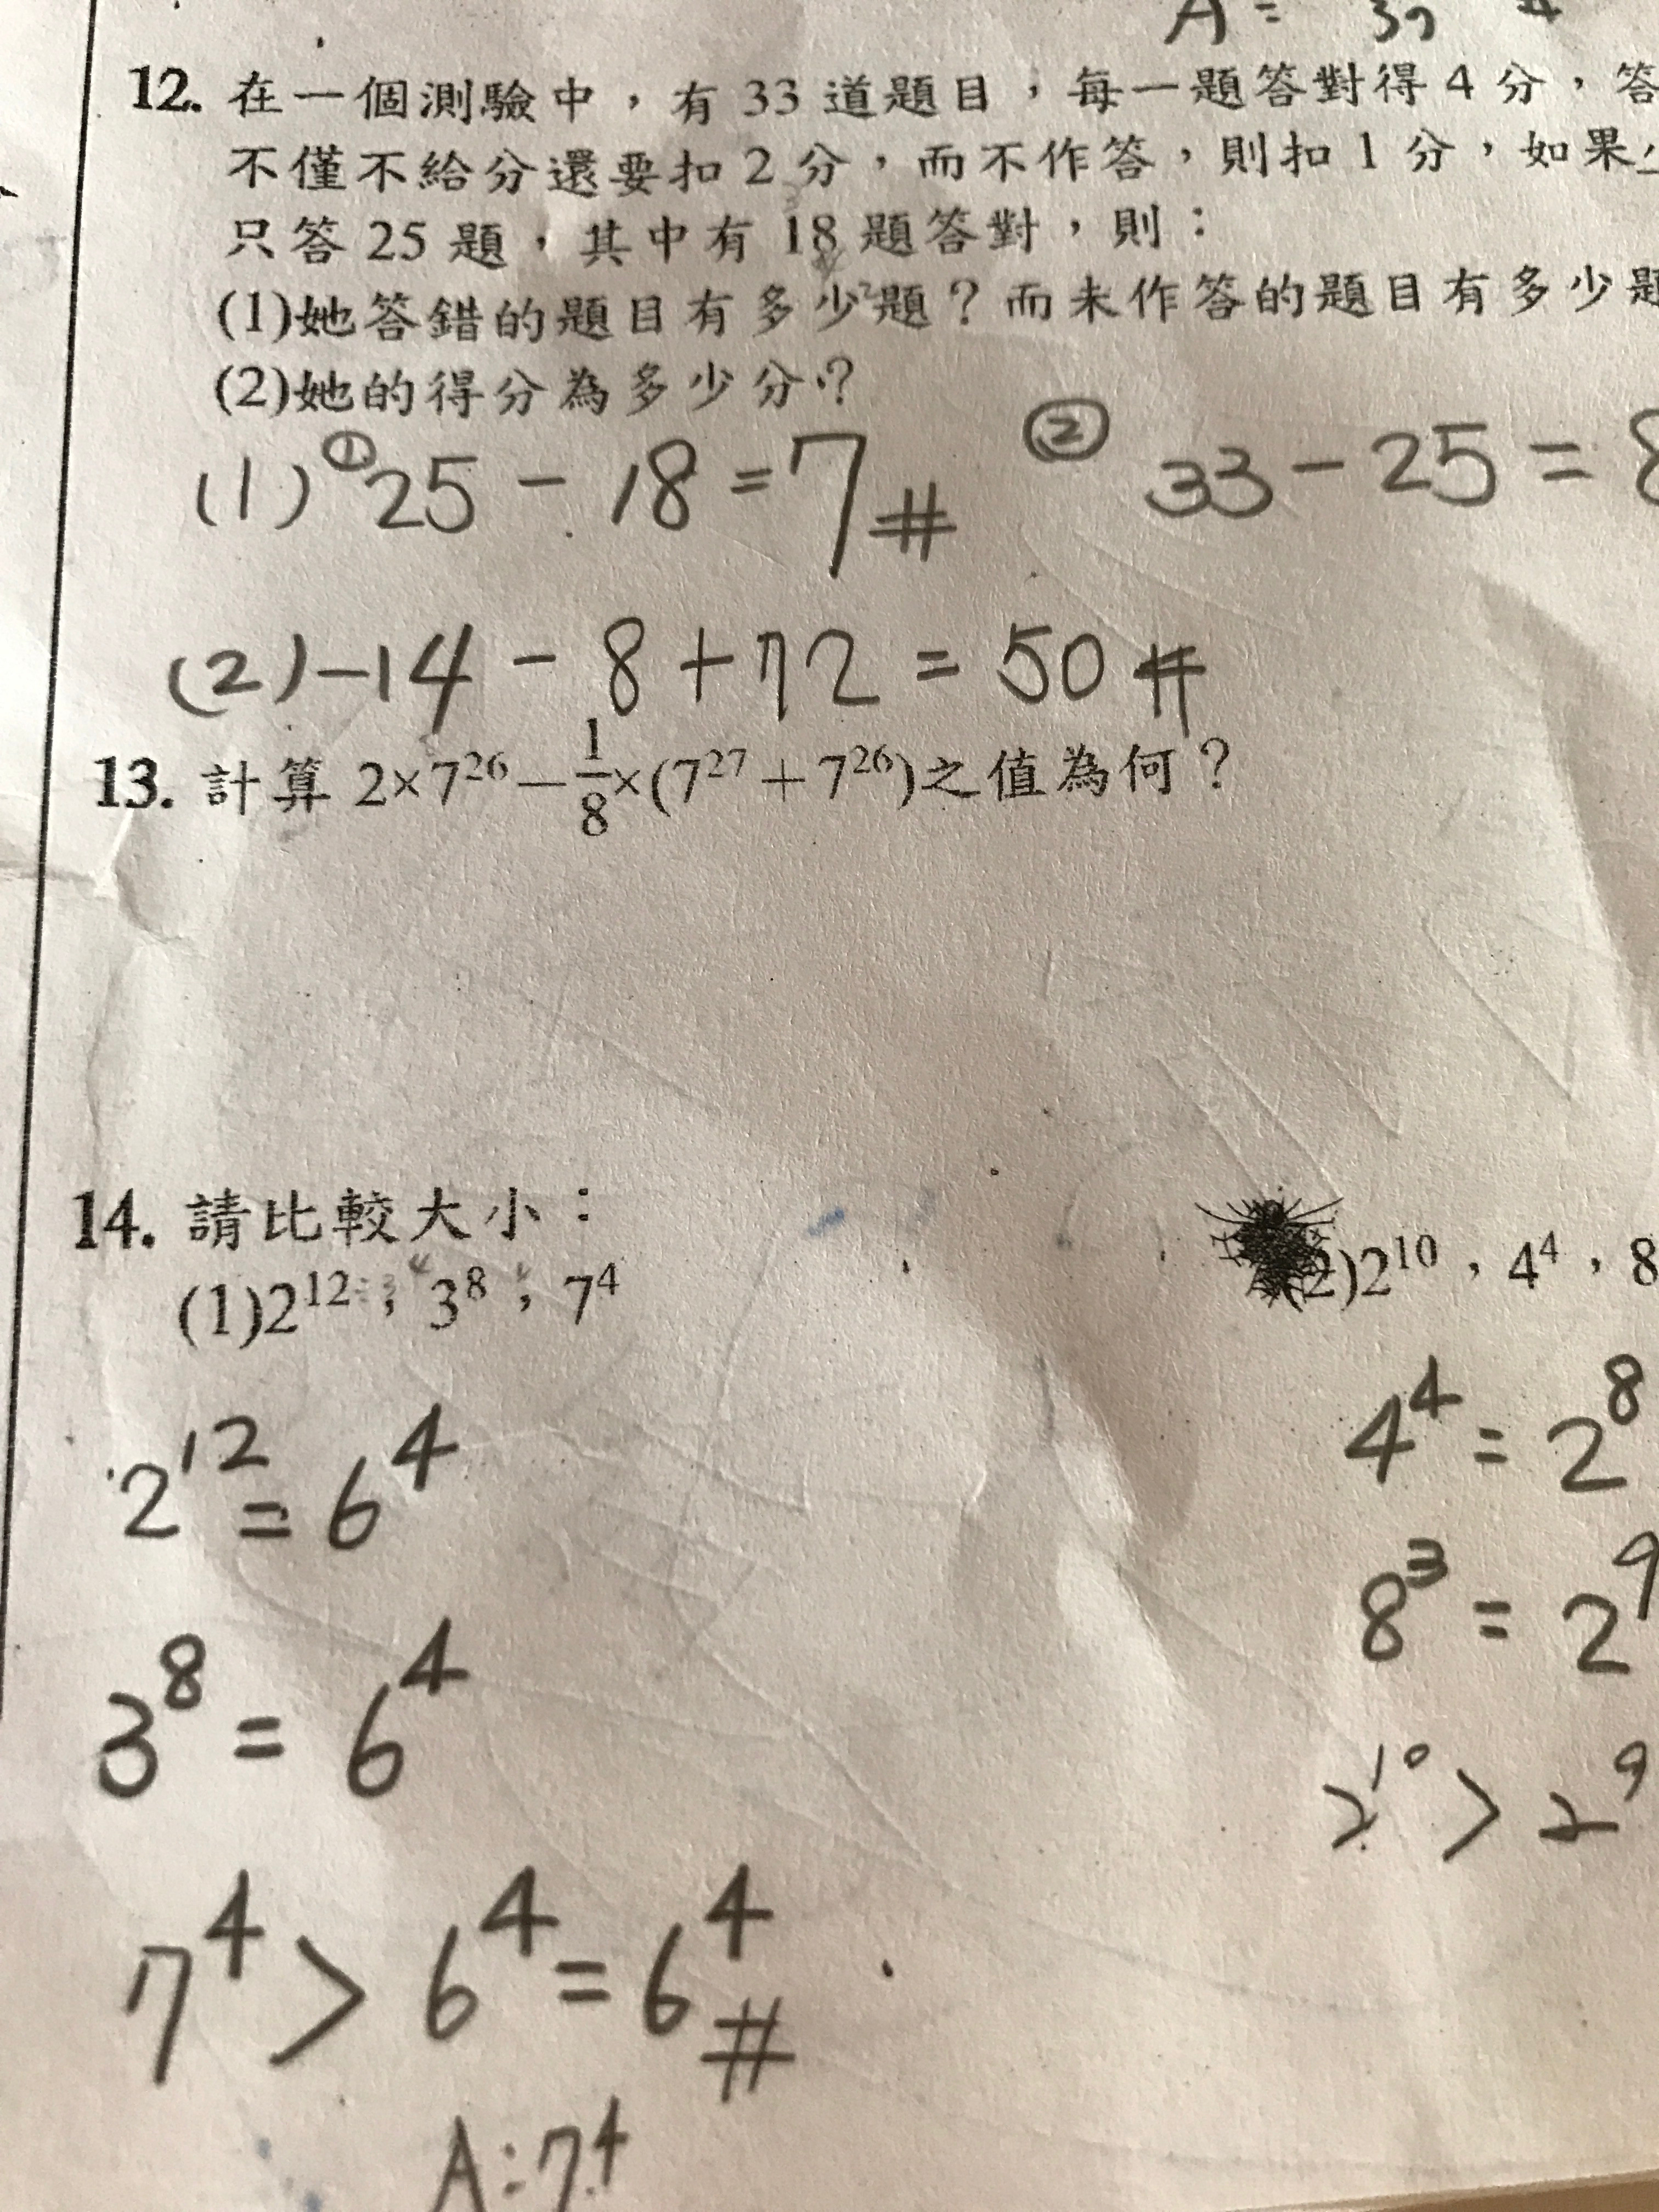 A = 39 #
12. 在一個測驗中，有 33 道題目，每一題答對得 4 分，答
不僅不給分還要扣 2 分，而不作答，則扣 1 分，如果
只答 25 題，其中有 18 題答對，則：
(1)她答錯的題目有多少題？而未作答的題目有多少題
(2)她的得分為多少分？
(1) ① 25 - 18 = 7 # ② 33 - 25 = 8
(2) -14 - 8 + 72 = 50 #
13. 計算 2×7²⁶－1/8×(7²⁷＋7²⁶)之值為何？
14. 請比較大小：
(1)2¹²，3⁸，7⁴ (2)2¹⁰，4⁴，8
2¹² = 6⁴
3⁸ = 6⁴
7⁴ > 6⁴ = 6⁴ #
A:7⁴
4⁴ = 2⁸
8³ = 2⁹
2¹⁰ > 2⁹